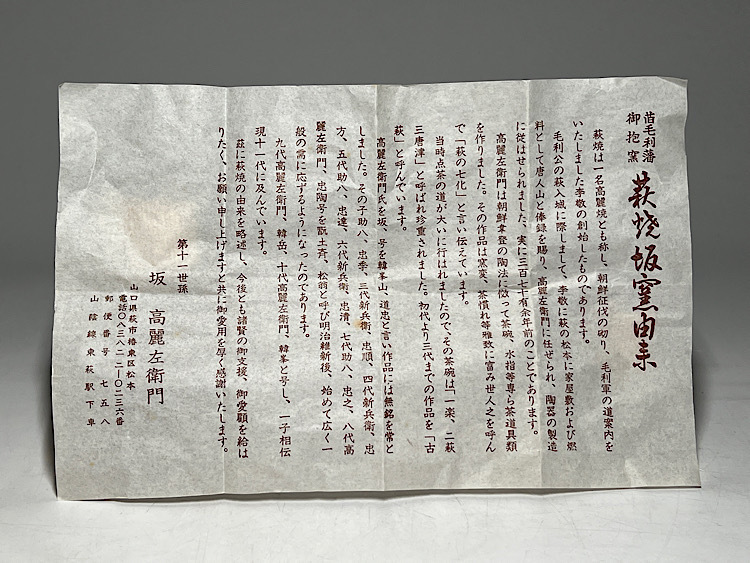 苗毛利藩
御抱窯
萩焼坂窯由来
萩焼は一名高麗焼とも称し、朝鮮征伐の砌り、毛利軍の道案内を
いたしました李敬の創始したものであります。
毛利公の萩入城に際しまして、李敬に萩の松本に家屋敷および燃
料として唐人山と俸録を賜り、高麗左衛門に任ぜられ、陶器の製造
に従はせられました。実に三百七十有余年前のことであります。
高麗左衛門は朝鮮韋登の陶法に倣って茶碗、水指等専ら茶道具類
を作りました。その作品は窯変、茶慣れ等雅致に富み世人之を呼ん
で「萩の七化」と言い伝えています。
当時点茶の道が大いに行はれましたので、その茶碗は「一楽、二萩
三唐津」と呼ばれ珍重されました。初代より三代までの作品を「古
萩」と呼んでいます。
高麗左衛門氏を坂、号を韓峯山、道忠と言い作品には無銘を常と
しました。その子助八、忠季、三代新兵衛、忠順、四代新兵衛、忠
方、五代助八、忠達、六代新兵衛、忠清、七代助八、忠之、八代高
麗左衛門、忠陶号を翫土斉、松翁と呼び明治維新後、始めて広く一
般の需に応ずるようになったのであります。
九代高麗左衛門、韓岳、十代高麗左衛門、韓峯と号し、一子相伝
現十一代に及んでいます。
茲に萩焼の由来を略述し、今後とも諸賢の御支援、御愛顧を給は
りたく、お願い申し上げますと共に御愛用を厚く感謝いたします。
第十一世孫
坂 高麗左衛門
山口県萩市椿東区松本
電話〇八三八二-二-〇二三六番
郵便番号 七五八
山陰線東萩駅下車